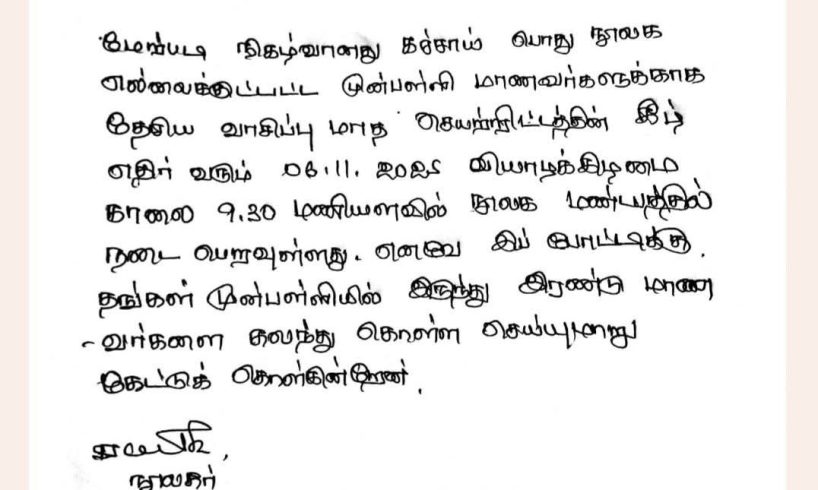 மேற்படி நிகழ்வானது கச்சாய் பொது நூலக
எல்லைக்குட்பட்ட முன்பள்ளி மாணவர்களுக்காக
தேசிய வாசிப்பு மாத செயற்றிட்டத்தின் கீழ்
எதிர் வரும் 06.11.2025 வியாழக்கிழமை
காலை 9.30 மணியளவில் நூலக மண்டபத்தில்
நடை பெறவுள்ளது. எனவே இப் போட்டிக்கு
தங்கள் முன்பள்ளியில் இருந்து இரண்டு மாண
-வர்களை கலந்து கொள்ள செய்யுமாறு
கேட்டுக் கொள்கின்றேன்.
நூலகர்